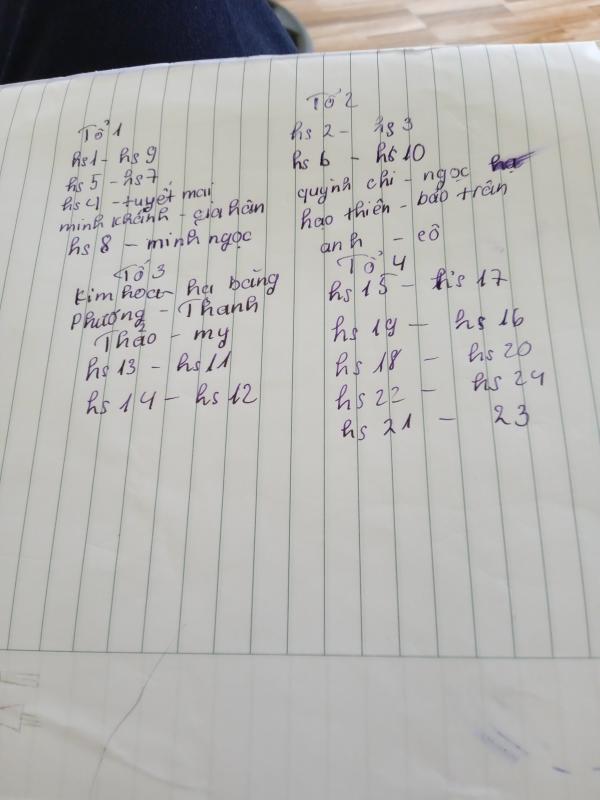 Tổ 1
hs1 - hs9
hs5 - hs7
hs4 - tuyết mai
minh khánh - gia hân
hs 8 - minh ngọc
Tổ 2
hs 2 - hs 3
hs 6 - hs 10
quỳnh chi - ngọc
hao thiên - bảo trân
anh - cô
Tổ 3
Kim hoa - ha băng
Phương - Thanh
Thảo - my
hs 13 - hs 11
hs 14 - hs 12
Tổ 4
hs 15 - hs 17
hs 19 - hs 16
hs 18 - hs 20
hs 22 - hs 24
hs 21 - 23